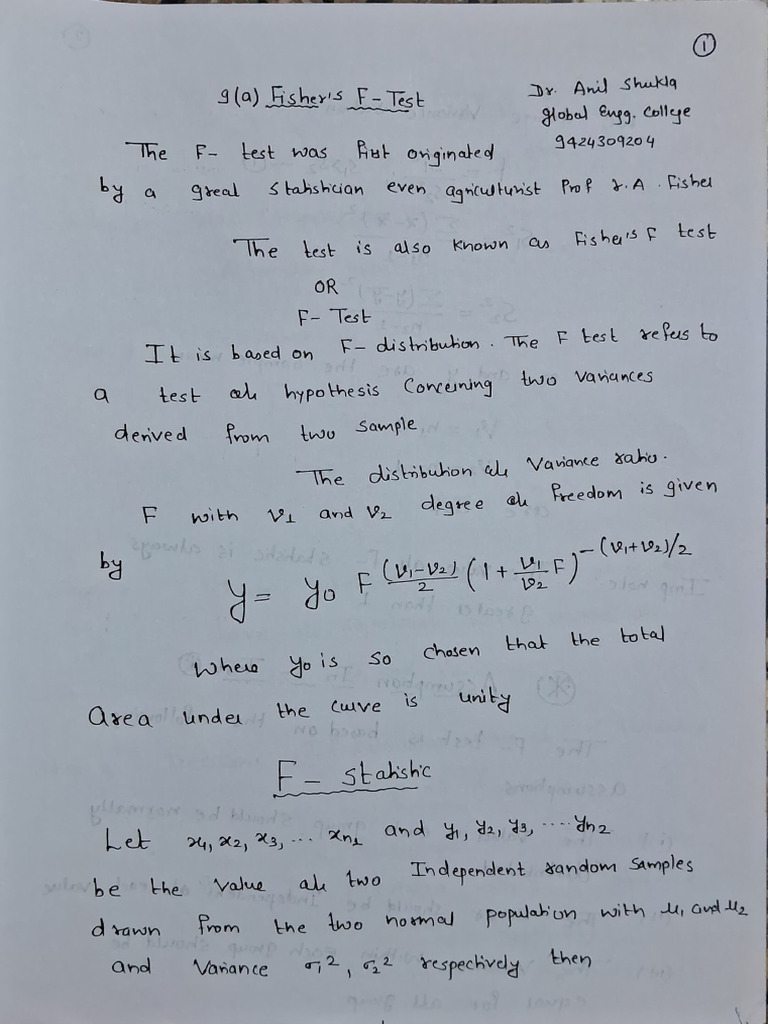 ①
9(a) Fisher's F-Test
Dr. Anil Shukla
Global Engg. College
9424309204
The F- test was first originated
by a great statistician even agriculturist Prof r.A. Fisher
The test is also known as Fisher's F test
OR
F- Test
It is based on F- distribution. The F test refers to
a test of hypothesis Concerning two variances
derived from two sample
The distribution of Variance ratio.
F with ν1 and ν2 degree of freedom is given
by
y = y0 F^((ν1-ν2)/2) (1 + ν1/ν2 F)^(-(ν1+ν2)/2)
Where y0 is so chosen that the total
area under the curve is unity
F- Statistic
Let x1, x2, x3, ... xn1 and y1, y2, y3, .... yn2
be the value of two Independent random samples
drawn from the two normal population with μ1 and μ2
and Variance σ1², σ2² respectively then